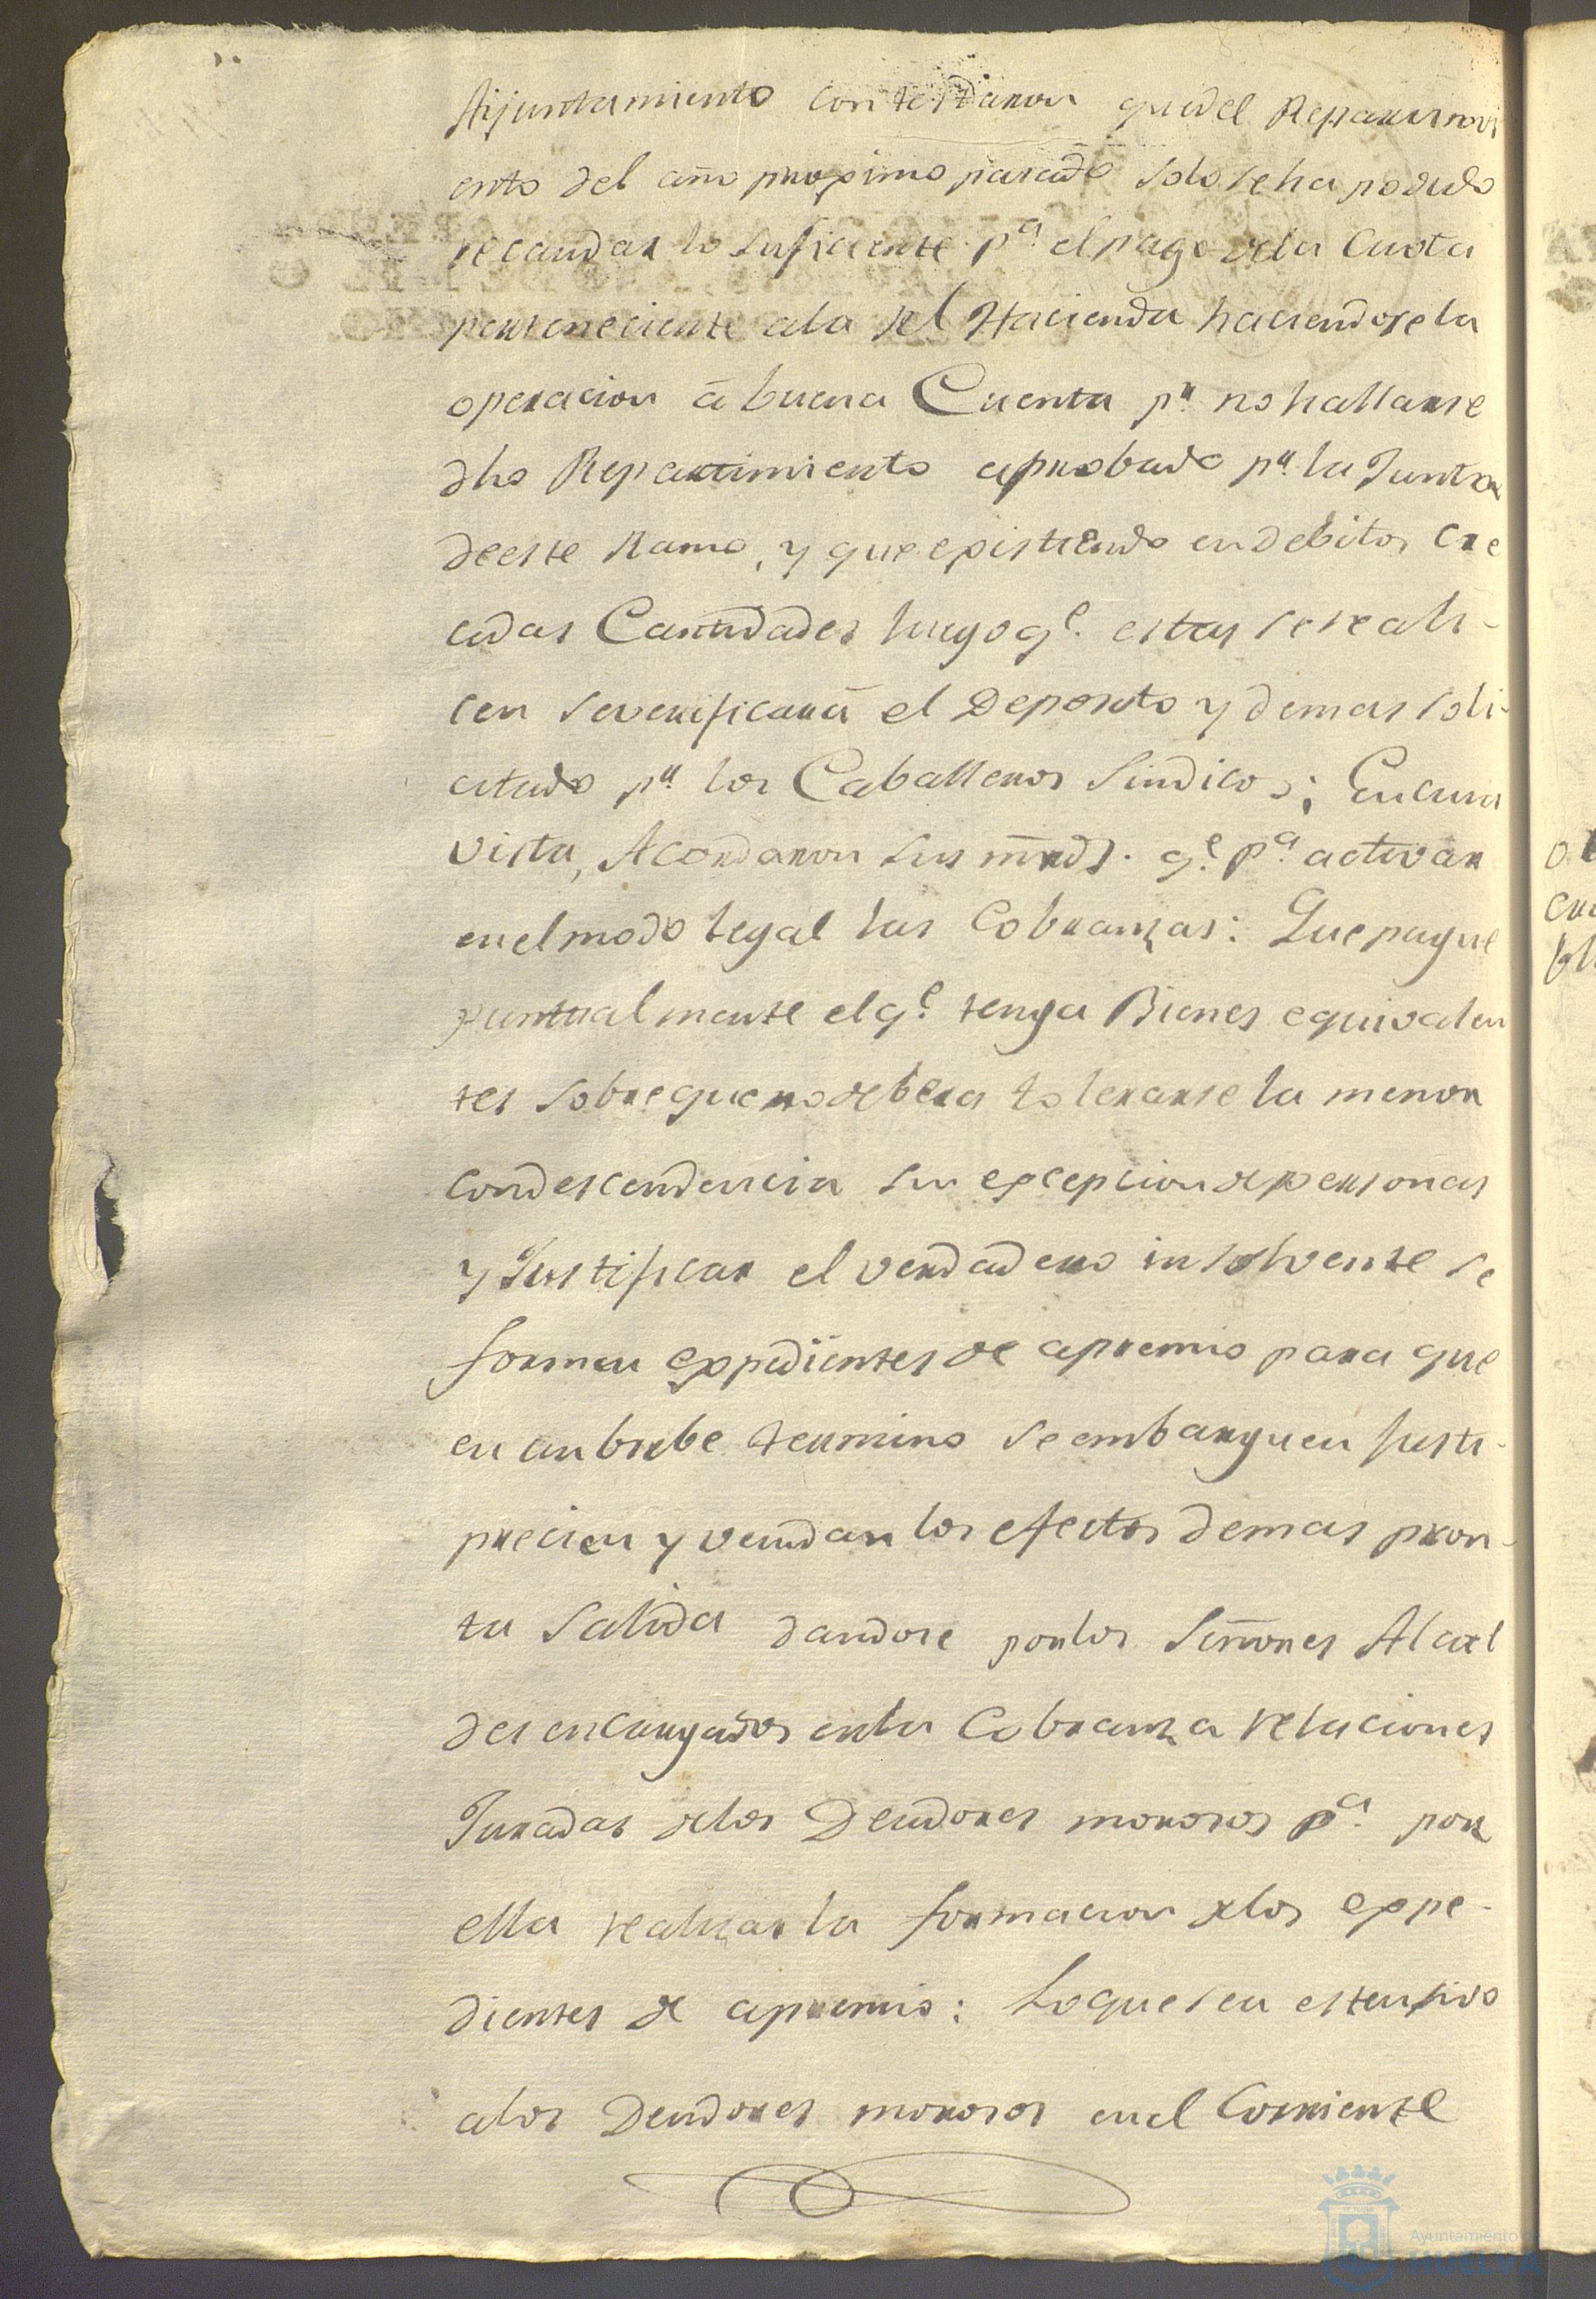 Aijuntamiento contestaron quedel Repartimi
ento del año proximo pasado solo se ha podido
recaudar lo suficiente pª. el pago dela Cuota
perteneciente ala Rl Hacienda haciendose la
operacion á buena Cuenta pr. no hallarse
dho Repartimiento aprobado pr. la Junta
deeste Ramo, y que existiendo en debitos cre
cidas Cantidades luego qe. estas se reali-
cen severificará el Deposito y demas soli-
citado pr. los Caballeros Sindicos; En cuia
vista, Acordaron sus mrds. qe. pª. activar
enelmodo legal las Cobranzas: Que pague
puntualmente elqe. tenga Bienes equivalen
tes sobre que no debera tolerarse la menor
condescendencia sin excepcion de personas
y Justificar el verdadero insolvente se
formen expedientes de apremio para que
en un brebe termino se embarguen Justi-
precien y vendan los efectos demas pron-
ta salida dandose porlos Señores Alcal
des encargados enla Cobranza relaciones
Juradas delos Deudores morosos pª. por
ella realizar la formacion delos expe-
dientes de apremio: Lo que sea estensivo
alos Deudores morosos enel Corriente
Ayuntamiento de
HUELVA